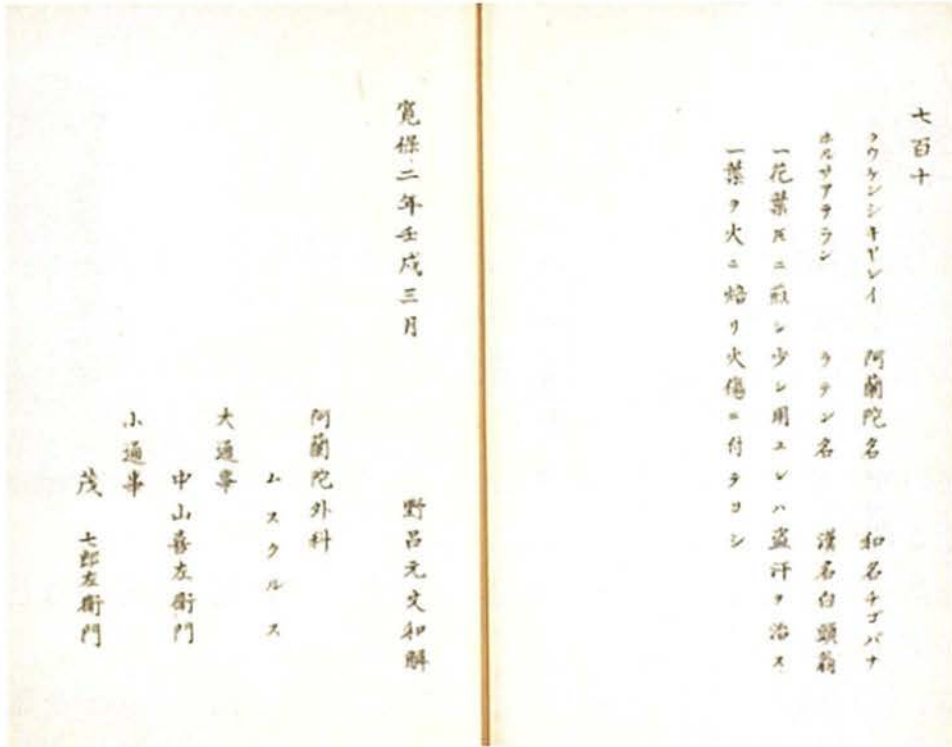 七百十
フウケンシキヤレイ 阿蘭陀名 和名チゴバナ
ホルサアテラン ラテン名 漢名白頭翁
一花葉共ニ煎シ少シ用ユレハ盗汗ヲ治ス
一葉ヲ火ニ焙リ火傷ニ付テヨシ
寛保二年壬戌三月 野呂元丈和解
阿蘭陀外科
ムスクルス
大通事
中山喜左衛門
小通事
茂 七郎左衛門